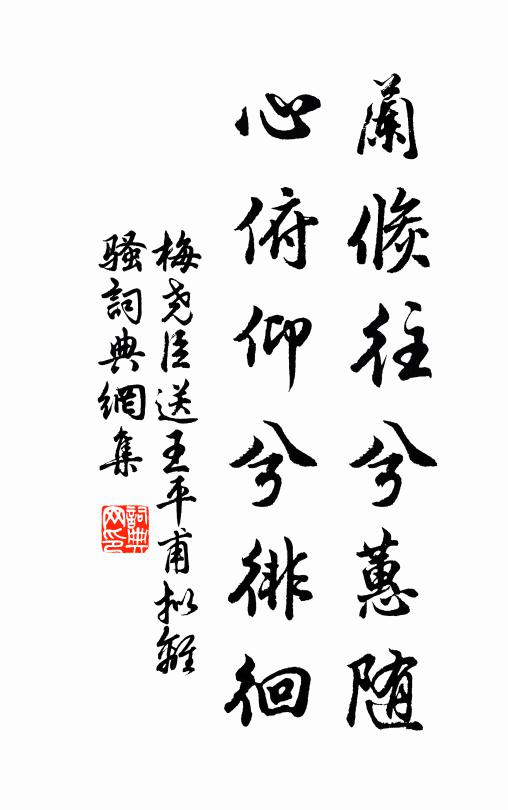 蘭倏往兮蕙随
心俯仰兮徘徊
梅尧臣送王平甫拟離
騷詞典網集
詞典
网印